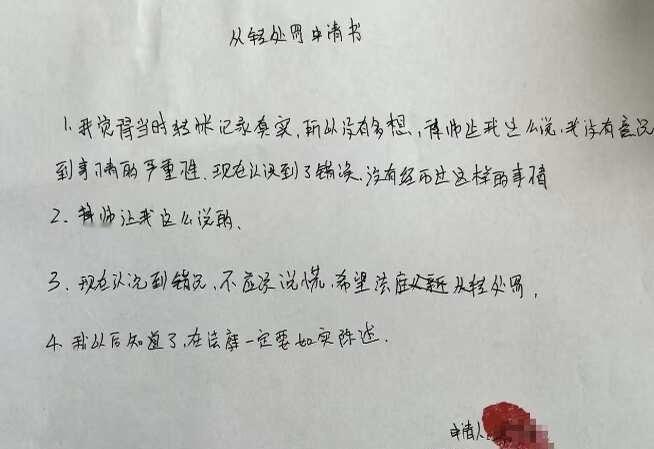 从轻处罚申请书
1. 我觉得当时转帐记录真实，所以没有多想，律师让我这么说，我没有意识
到事情的严重性、现在认识到了错误，没有经历过这样的事情
2、律师让我这么说的、
3、现在认识到错误，不应该说慌，希望法庭从轻处罚，
4. 我以后知道了，在法庭一定要如实陈述.
申请人：